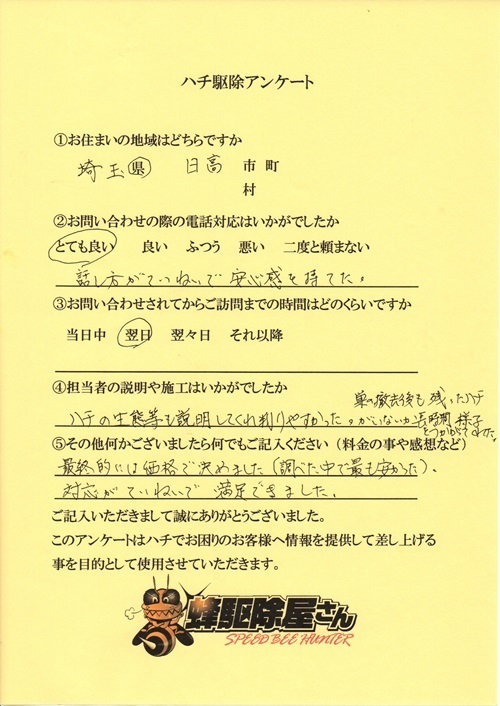 ハチ駆除アンケート
①お住まいの地域はどちらですか
埼玉県 日高 市 町
村
②お問い合わせの際の電話対応はいかがでしたか
とても良い 良い ふつう 悪い 二度と頼まない
話し方がていねいで安心感を持てた。
③お問い合わせされてからご訪問までの時間はどのくらいですか
当日中 翌日 翌々日 それ以降
④担当者の説明や施工はいかがでしたか
ハチの生態等も説明してくれ判りやすかった。
巣の撤去後も残ったハチ
がいないか長時間様子
をうかがってくれた。
⑤その他何かございましたら何でもご記入ください(料金の事や感想など)
最終的には価格で決めました(調べた中で最も安かった)。
対応がていねいで満足できました。
ご記入いただきまして誠にありがとうございました。
このアンケートはハチでお困りのお客様へ情報を提供して差し上げる
事を目的として使用させていただきます。
蜂駆除屋さん
SPEED BEE HUNTER